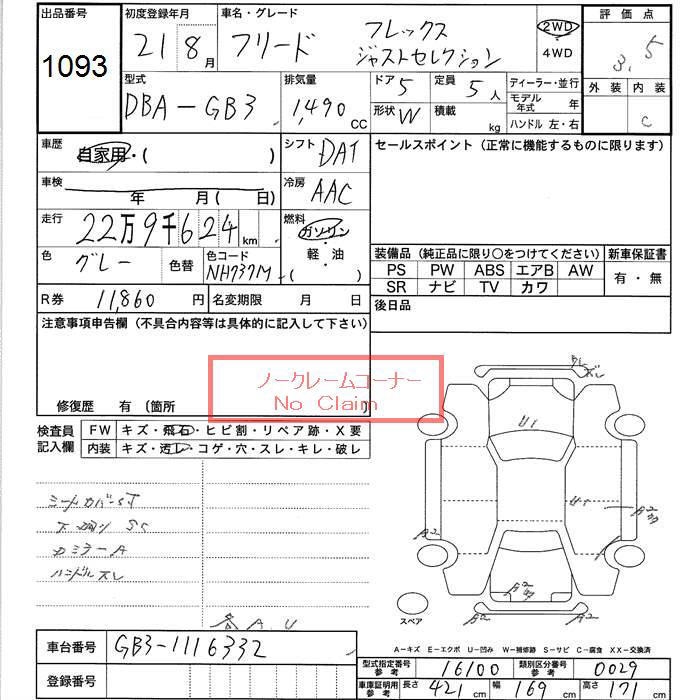 出品番号 初度登録年月 車名・グレード 評価点
1093 21 8月 フリード フレックス ジャストセレクション 2WD 4WD 3.5
外装 内装
C
型式 排気量 ドア 5 定員 5人 ディーラー・並行
DBA-GB3 1,490 CC 形状 W 積載 kg モデル年式 年
ハンドル 左・右
車歴 自家用・( ) シフト DAT セールスポイント(正常に機能するものに限ります)
車検 年 月( 日) 冷房 AAC
走行 22万9千624km 燃料 ガソリン・軽油・( )
色 グレー 色替 色コード NH737M
装備品(純正品に限り○をつけてください) 新車保証書
PS PW ABS エアB AW 有・無
SR ナビ TV カワ
R券 11,860円 名変期限 月 日 後日品
注意事項申告欄(不具合内容等は具体的に記入して下さい)
ノークレームコーナー
No Claim
修復歴 有〔箇所
検査員記入欄 FW キズ・飛石・ヒビ割・リペア跡・X要
内装 キズ・汚レ・コゲ・穴・スレ・キレ・破レ
シートカバーST
下廻り SS
カミラーA
ハンドルスレ
各A.U
ズレ
U1
U1
A2
A2
A2
スペア
A-キズ E-エクボ U-凹み W-補修跡 S-サビ C-腐食 XX-交換済
車台番号 GB3-1116332
登録番号
型式指定番号 参考 16100 類別区分番号 参考 0029
車庫証明用 参考 長さ 421cm 幅 169cm 高さ 171cm